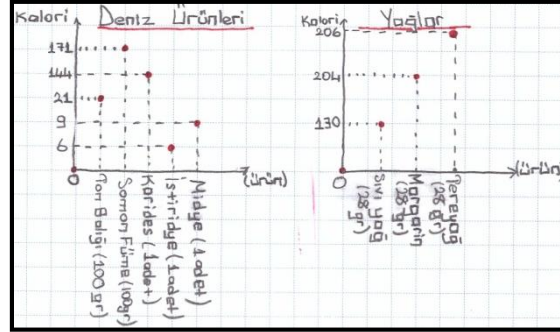 Kalori
Deniz Ürünleri
171
144
21
9
6
0
(ürün)
Ton Balığı (100 gr)
Somon Füme (100gr)
Karides (1 adet)
İstiridye (1 adet)
Midye (1 adet)
Kalori
Yağlar
206
204
130
0
(ürün)
Sıvı yağ (28 gr)
Margarin (28 gr)
Tereyağ (28 gr)